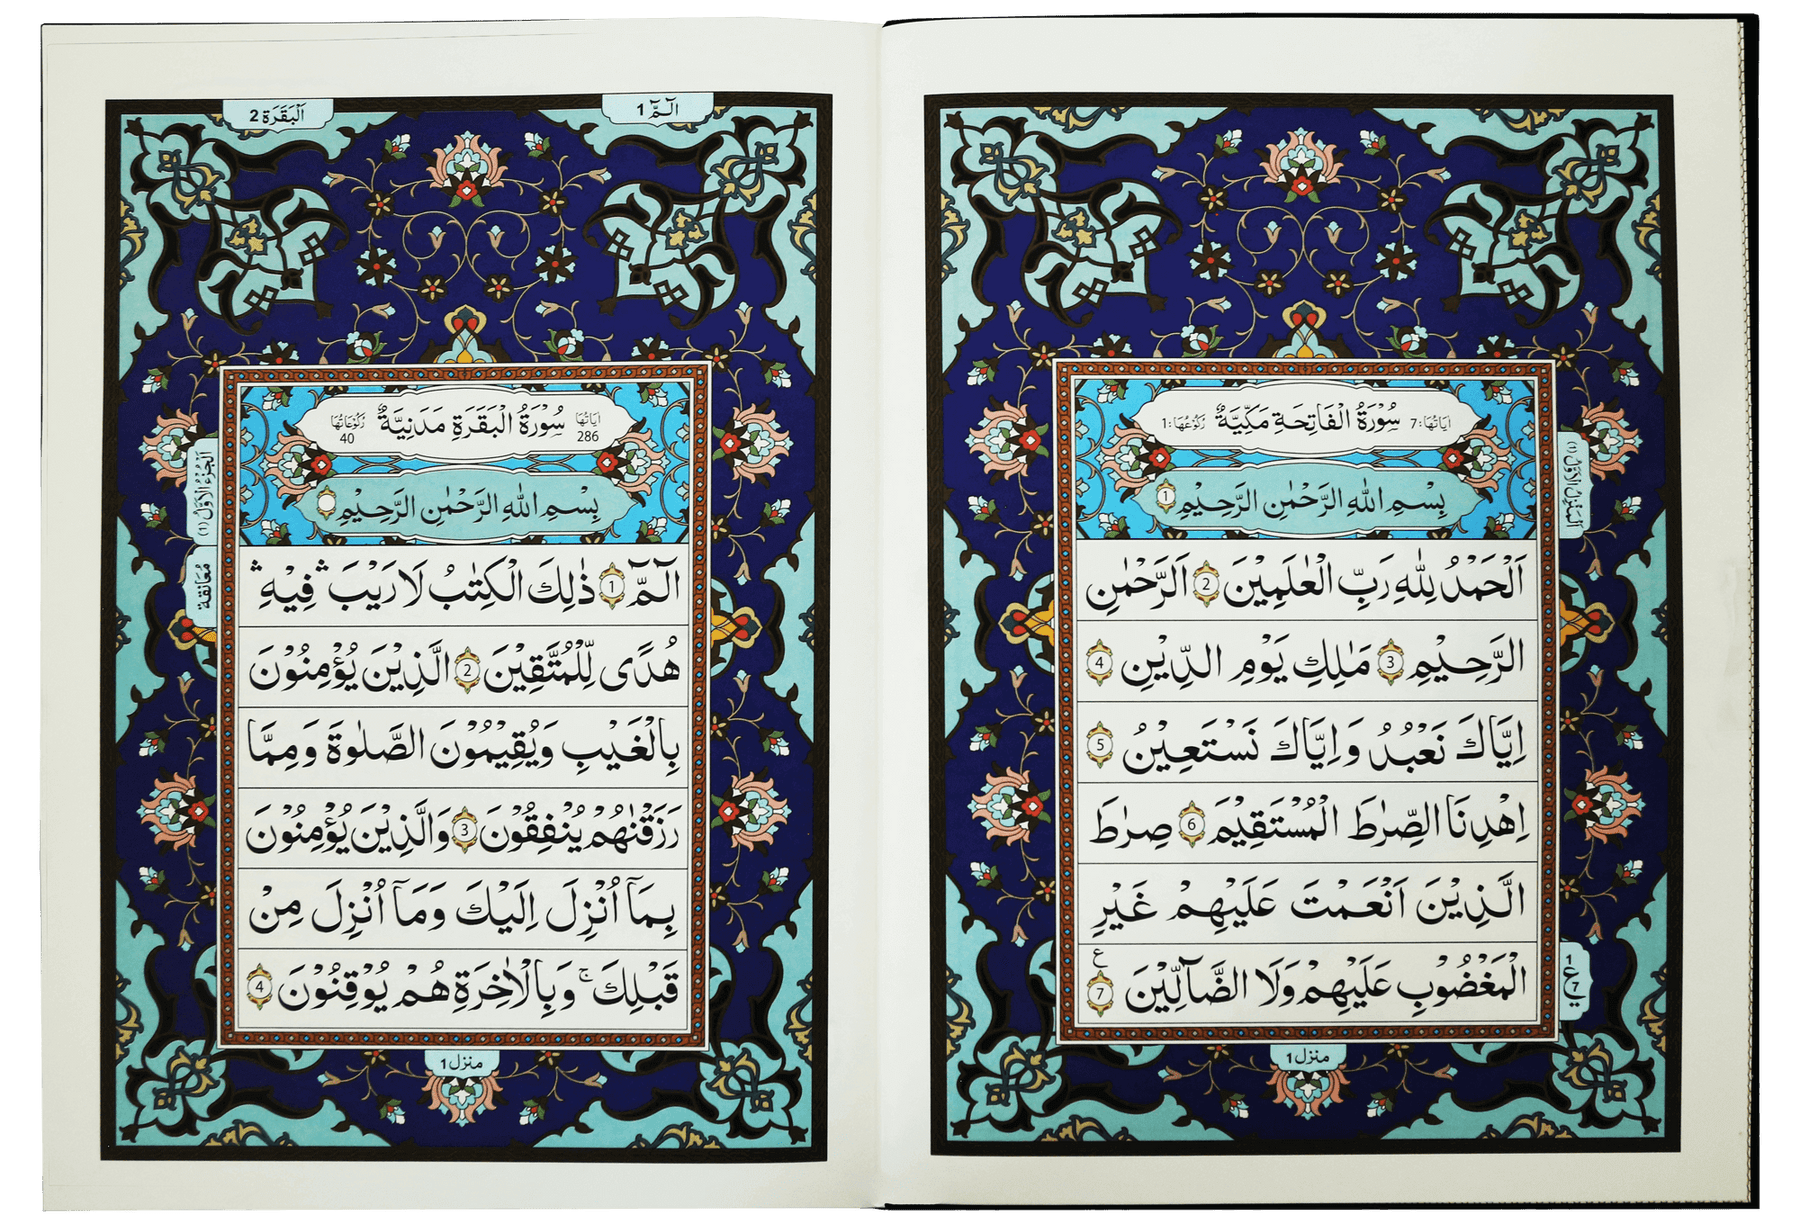 اٰيَاتُهَا: 7 سُوْرَةُ الْفَاتِحَةِ مَكِّيَّةٌ رُكُوْعُهَا: 1
بِسْمِ اللّٰهِ الرَّحْمٰنِ الرَّحِيْمِ 1
اَلْحَمْدُ لِلّٰهِ رَبِّ الْعٰلَمِيْنَ 2 الرَّحْمٰنِ
الرَّحِيْمِ 3 مٰلِكِ يَوْمِ الدِّيْنِ 4
اِيَّاكَ نَعْبُدُ وَاِيَّاكَ نَسْتَعِيْنُ 5
اِهْدِنَا الصِّرَاطَ الْمُسْتَقِيْمَ 6 صِرَاطَ
الَّذِيْنَ اَنْعَمْتَ عَلَيْهِمْ غَيْرِ
الْمَغْضُوْبِ عَلَيْهِمْ وَلَا الضَّآلِّيْنَ 7 ع
1 ع 7
منزل 1
الٓمّٓ 1
اَلْبَقَرَة 2
اٰيَاتُهَا 286 سُوْرَةُ الْبَقَرَةِ مَدَنِيَّةٌ رُكُوْعَاتُهَا 40
بِسْمِ اللّٰهِ الرَّحْمٰنِ الرَّحِيْمِ
الٓمّٓ 1 ذٰلِكَ الْكِتٰبُ لَا رَيْبَ ۛ فِيْهِ ۛ
هُدًى لِّلْمُتَّقِيْنَ 2 الَّذِيْنَ يُؤْمِنُوْنَ
بِالْغَيْبِ وَيُقِيْمُوْنَ الصَّلٰوةَ وَمِمَّا
رَزَقْنٰهُمْ يُنْفِقُوْنَ 3 وَالَّذِيْنَ يُؤْمِنُوْنَ
بِمَآ اُنْزِلَ اِلَيْكَ وَمَآ اُنْزِلَ مِنْ
قَبْلِكَ ۚ وَبِالْاٰخِرَةِ هُمْ يُوْقِنُوْنَ 4
اَلْجُزْءُ الْاَوَّلُ (1)
مُعَانقة
منزل 1